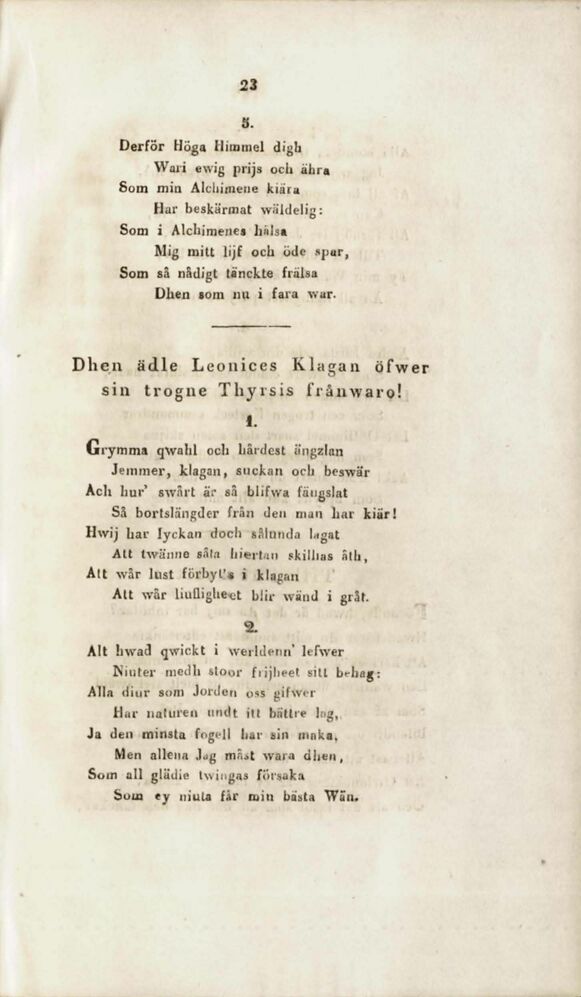 23
5.
Derför Höga Himmel digh
Wari ewig prijs och ähra
Som min Alchimene kiära
Har beskärmat wäldelig:
Som i Alchimenes hälsa
Mig mitt lijf och öde spar,
Som så nådigt tänckte frälsa
Dhen som nu i fara war.
Dhen ädle Leonices Klagan öfwer
sin trogne Thyrsis frånwaro!
1.
Grymma qwahl och hårdest ängzlan
Jemmer, klagan, suckan och beswär
Ach hur' swårt är så blifwa fängslat
Så bortslängder från den man har kiär!
Hwij har lyckan doch sålunda lagat
Att twänne såta hiertan skilhas åth,
Att wår lust förbyt's i klagan
Att wår liufligheet blir wänd i gråt.
2.
Alt hwad qwickt i werldenn' lefwer
Niuter medh stoor frijheet sitt behag:
Alla diur som Jorden oss gifwer
Har naturen undt itt bättre lag,
Ja den minsta fogell har sin maka,
Men allena Jag måst wara dhen,
Som all glädie twingas försaka
Som ey niuta får min bästa Wän.